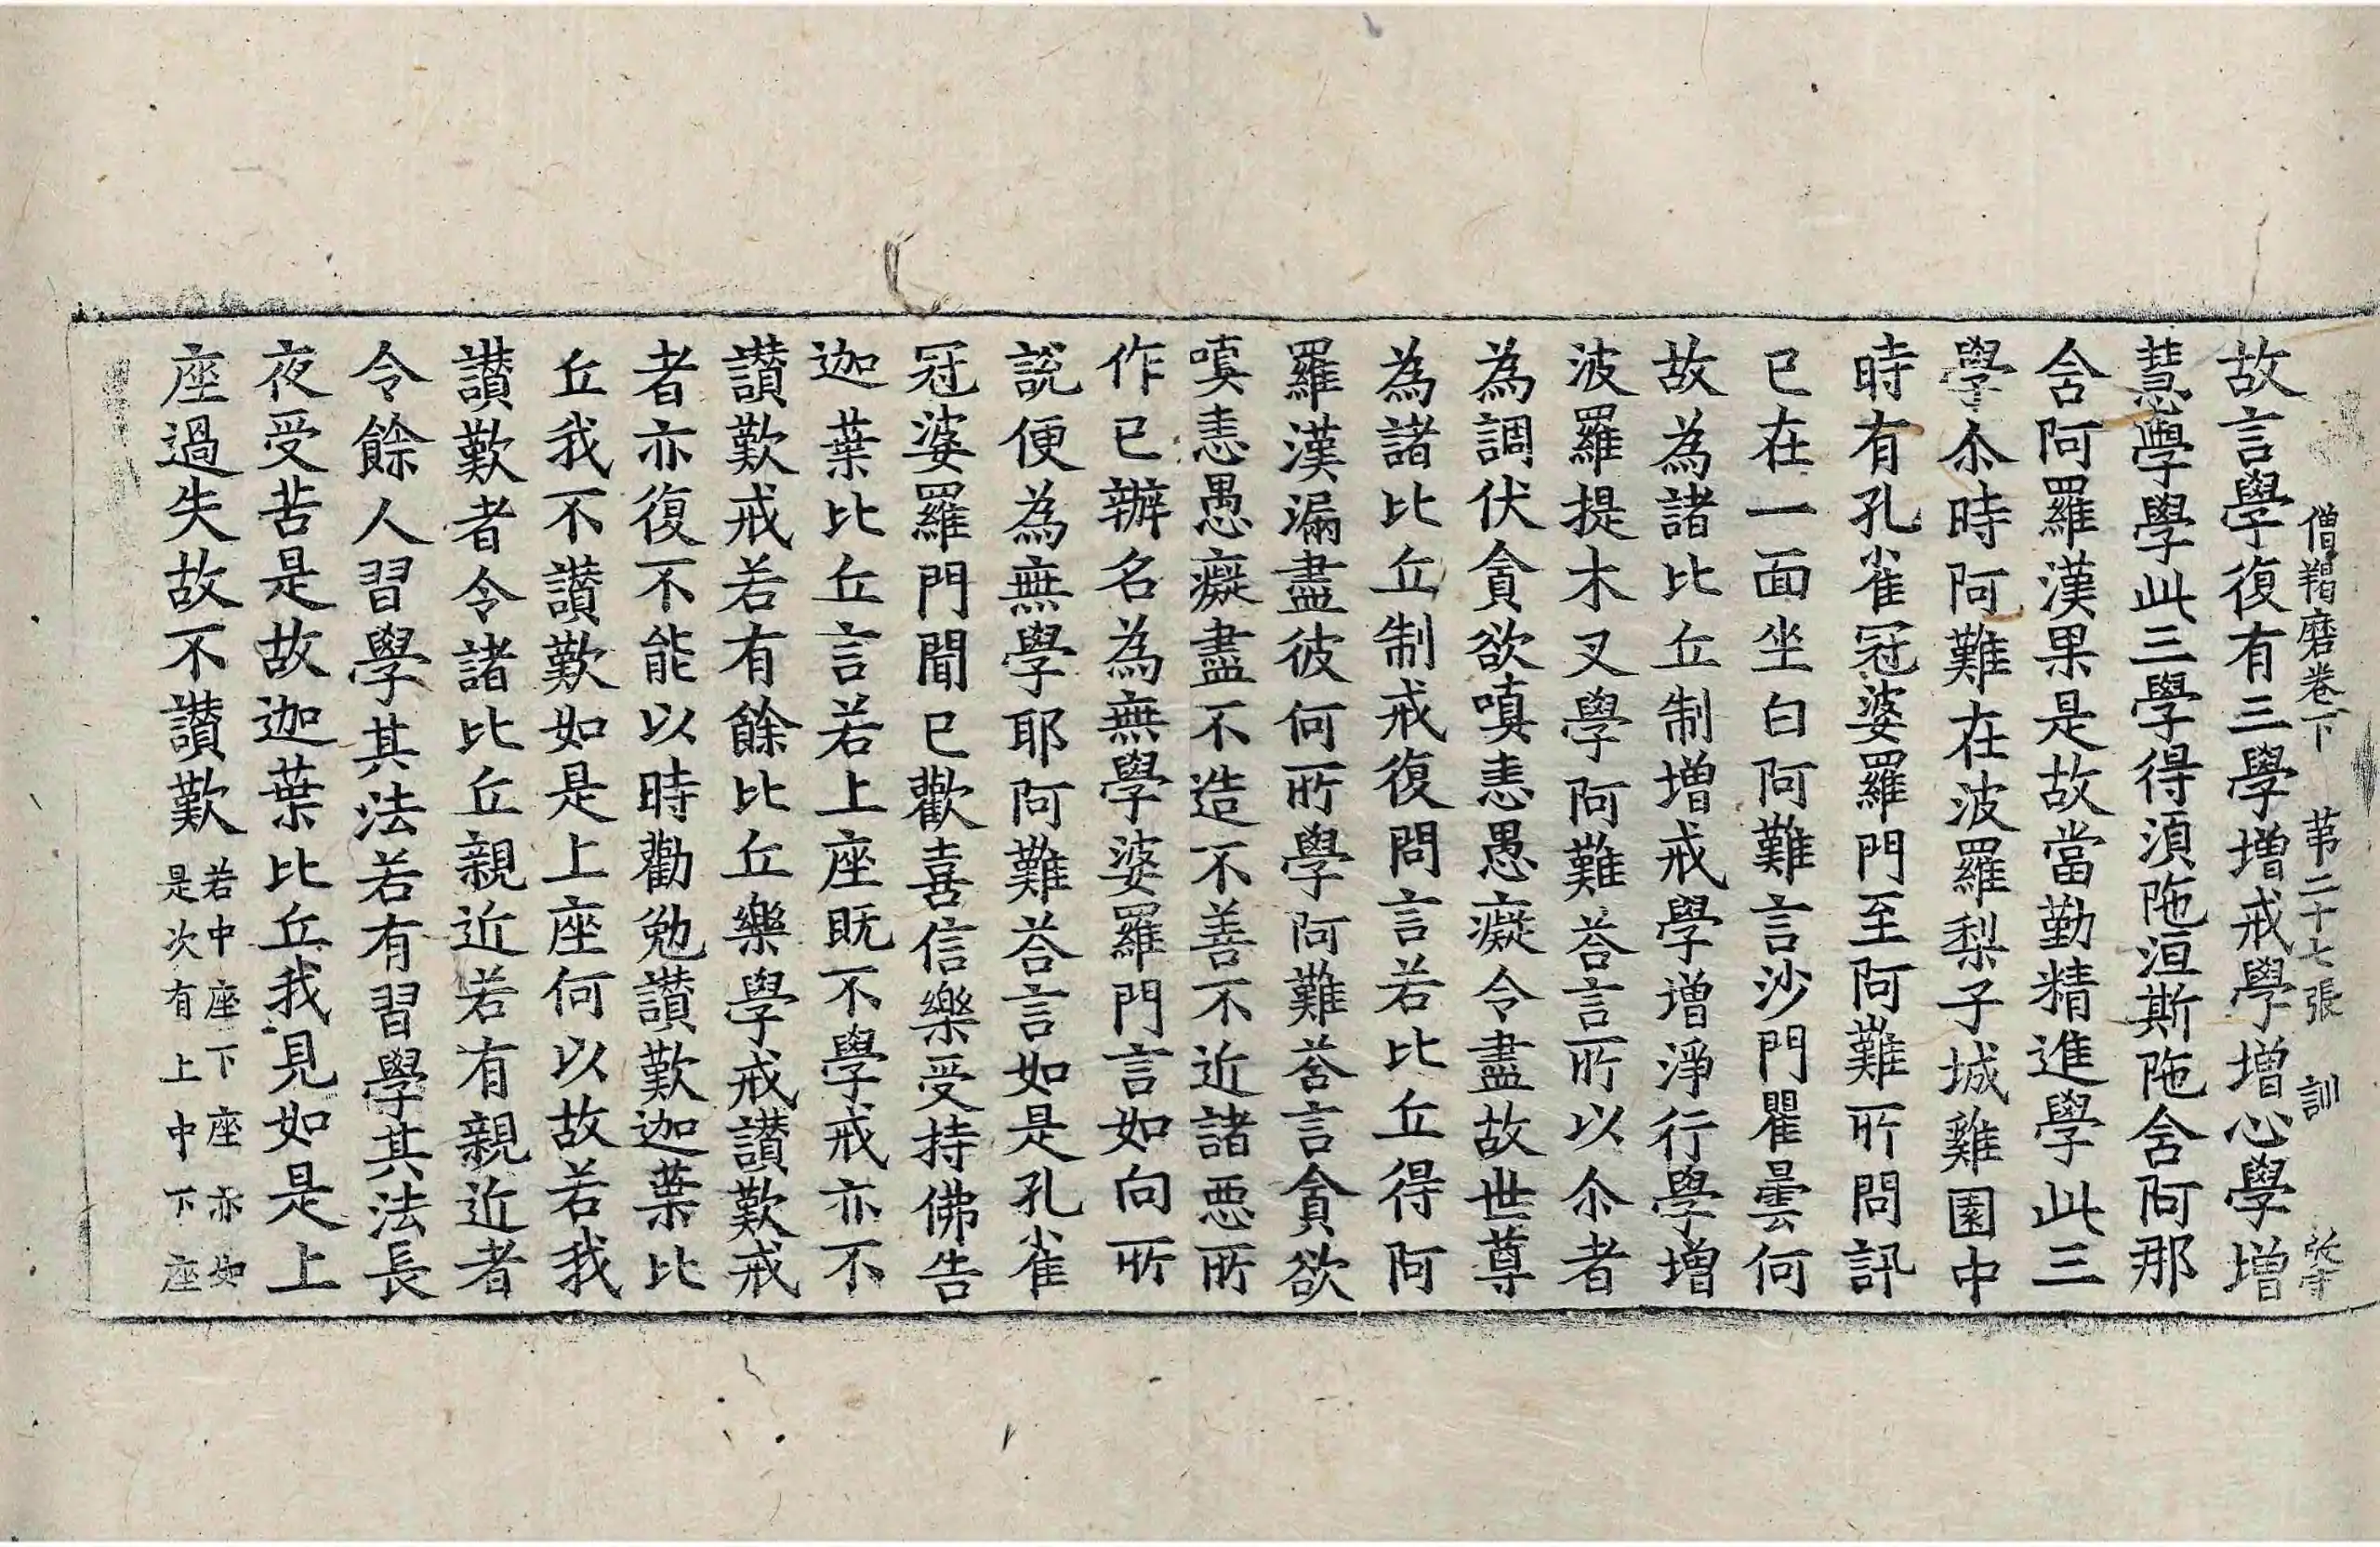 僧羯磨卷下 苐二十七張 訓
故言學復有三學增戒學增心學增
慧學學此三學得湏陁洹斯陁含阿那
含阿羅漢果是故當勤精進學此三
學尒時阿難在波羅梨子城雞園中
時有孔雀冠婆羅門至阿難所問訊
已在一面坐白阿難言沙門瞿曇何
故為諸比丘制增戒學增淨行學增
波羅提木叉學阿難荅言所以尒者
為調伏貪欲嗔恚愚癡令盡故世尊
為諸比丘制戒復問言若比丘得阿
羅漢漏盡彼何所學阿難荅言貪欲
嗔恚愚癡盡不造不善不近諸惡所
作已辦名為無學婆羅門言如向所
說便為無學耶阿難荅言如是孔雀
冠婆羅門聞已歡喜信樂受持佛告
迦葉比丘言若上座既不學戒亦不
讃歎戒若有餘比丘樂學戒讃歎戒
者亦復不能以時勸勉讃歎迦葉比
丘我不讃歎如是上座何以故若我
讃歎者令諸比丘親近若有親近者
令餘人習學其法若有習學其法長
夜受苦是故迦葉比丘我見如是上
座過失故不讃歎若中座下座亦如
是次有上中下座